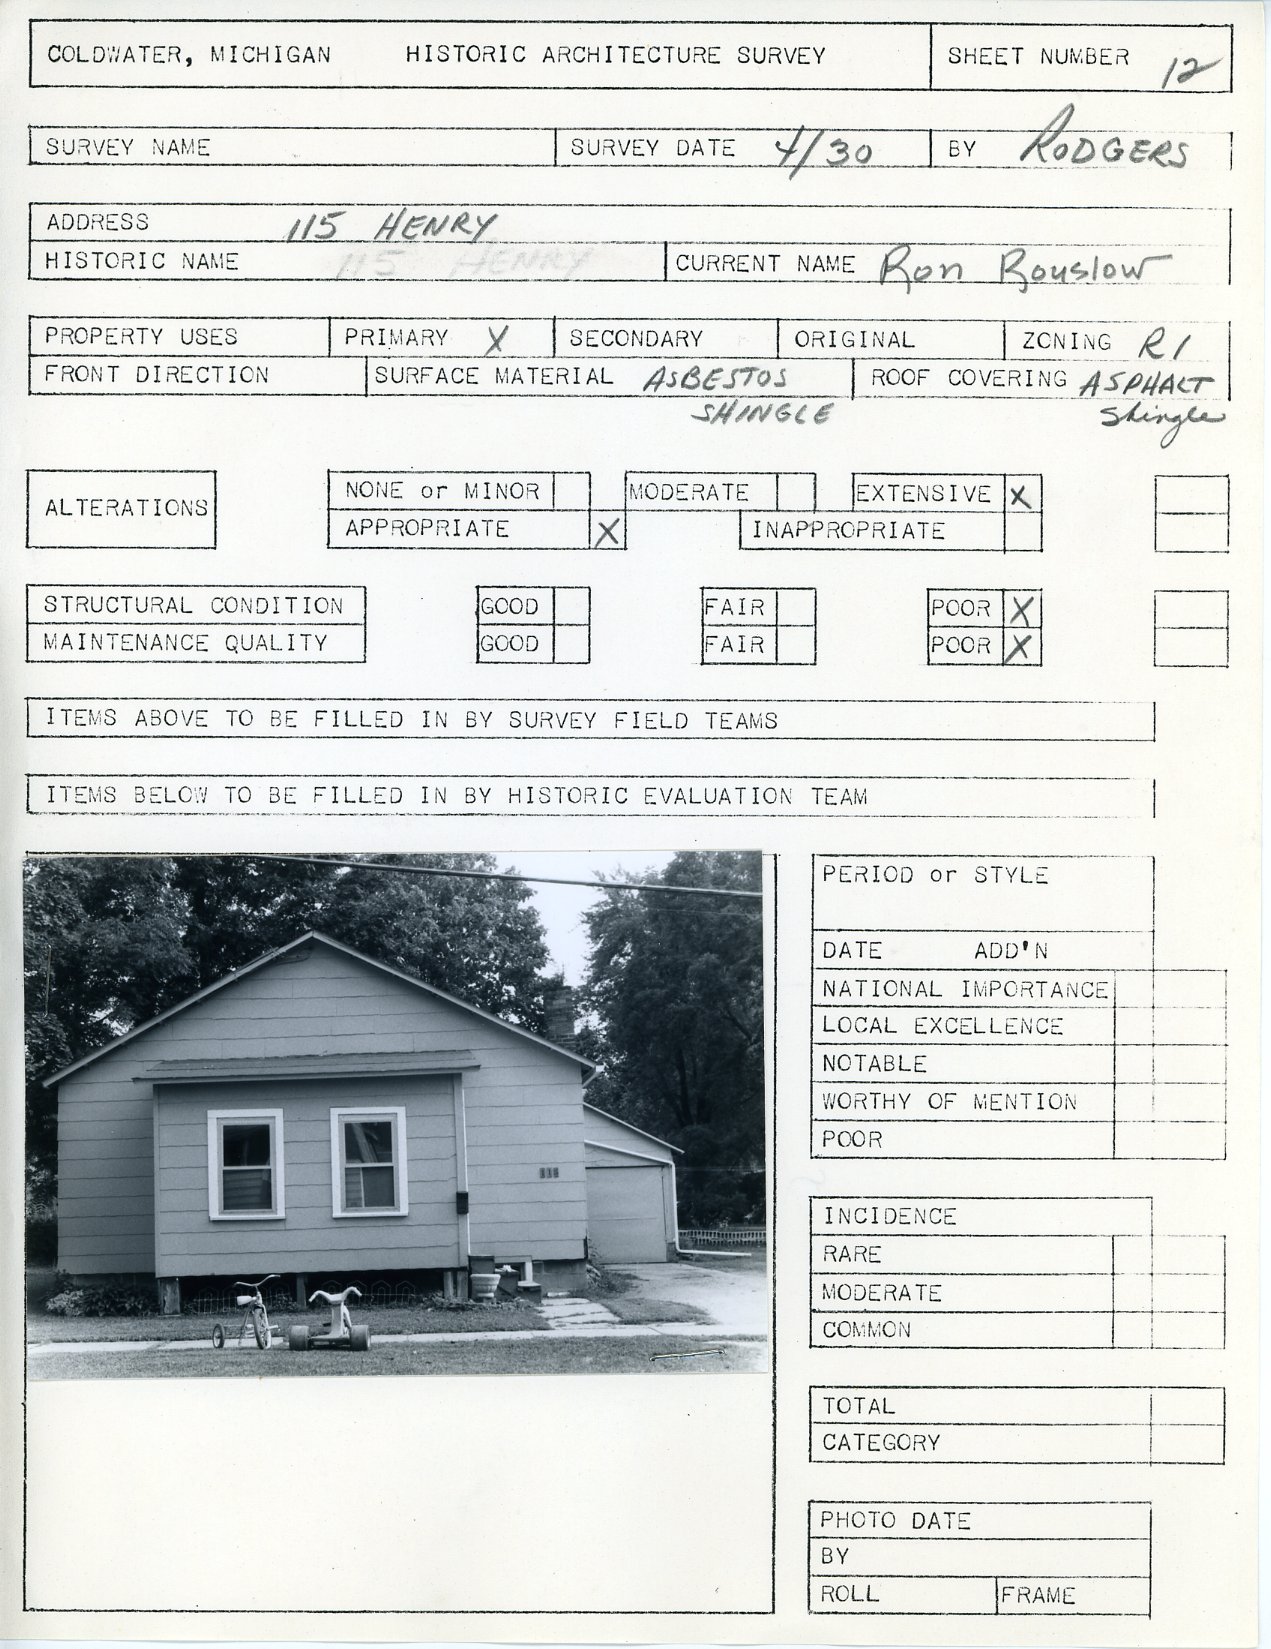 COLDWATER, MICHIGAN HISTORIC ARCHITECTURE SURVEY SHEET NUMBER 12
SURVEY NAME SURVEY DATE 4/30 BY RODGERS
ADDRESS 115 HENRY
HISTORIC NAME 115 HENRY CURRENT NAME Ron Rouslow
PROPERTY USES PRIMARY X SECONDARY ORIGINAL ZONING R1
FRONT DIRECTION SURFACE MATERIAL ASBESTOS ROOF COVERING ASPHALT
SHINGLE Shingle
ALTERATIONS NONE or MINOR MODERATE EXTENSIVE X
APPROPRIATE X INAPPROPRIATE
STRUCTURAL CONDITION GOOD FAIR POOR X
MAINTENANCE QUALITY GOOD FAIR POOR X
ITEMS ABOVE TO BE FILLED IN BY SURVEY FIELD TEAMS
ITEMS BELOW TO BE FILLED IN BY HISTORIC EVALUATION TEAM
PERIOD or STYLE
DATE ADD'N
NATIONAL IMPORTANCE
LOCAL EXCELLENCE
NOTABLE
WORTHY OF MENTION
POOR
115
INCIDENCE
RARE
MODERATE
COMMON
TOTAL
CATEGORY
PHOTO DATE
BY
ROLL FRAME